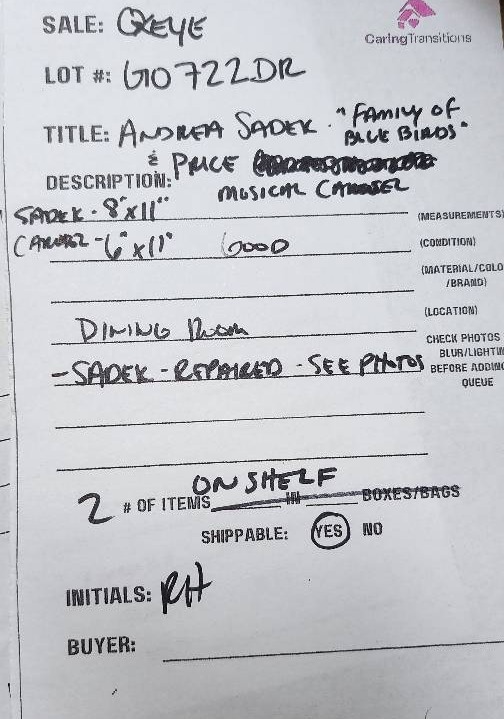 SALE: OXEYE
CaringTransitions
LOT #: G10722DR
TITLE: ANDREA SADEK - "FAMILY OF
BLUE BIRDS"
& PRICE
DESCRIPTION: MUSICAL CAROUSEL
SADEK - 8"x11" (MEASUREMENTS)
CAROUSEL - 6"x11" GOOD (CONDITION)
(MATERIAL/COLO
/BRAND)
(LOCATION)
DINING ROOM
CHECK PHOTOS
BLUR/LIGHTIN
- SADEK - REPAIRED - SEE PHOTOS BEFORE ADDING
QUEUE
ON SHELF
2 # OF ITEMS IN BOXES/BAGS
SHIPPABLE: YES NO
INITIALS: RH
BUYER: